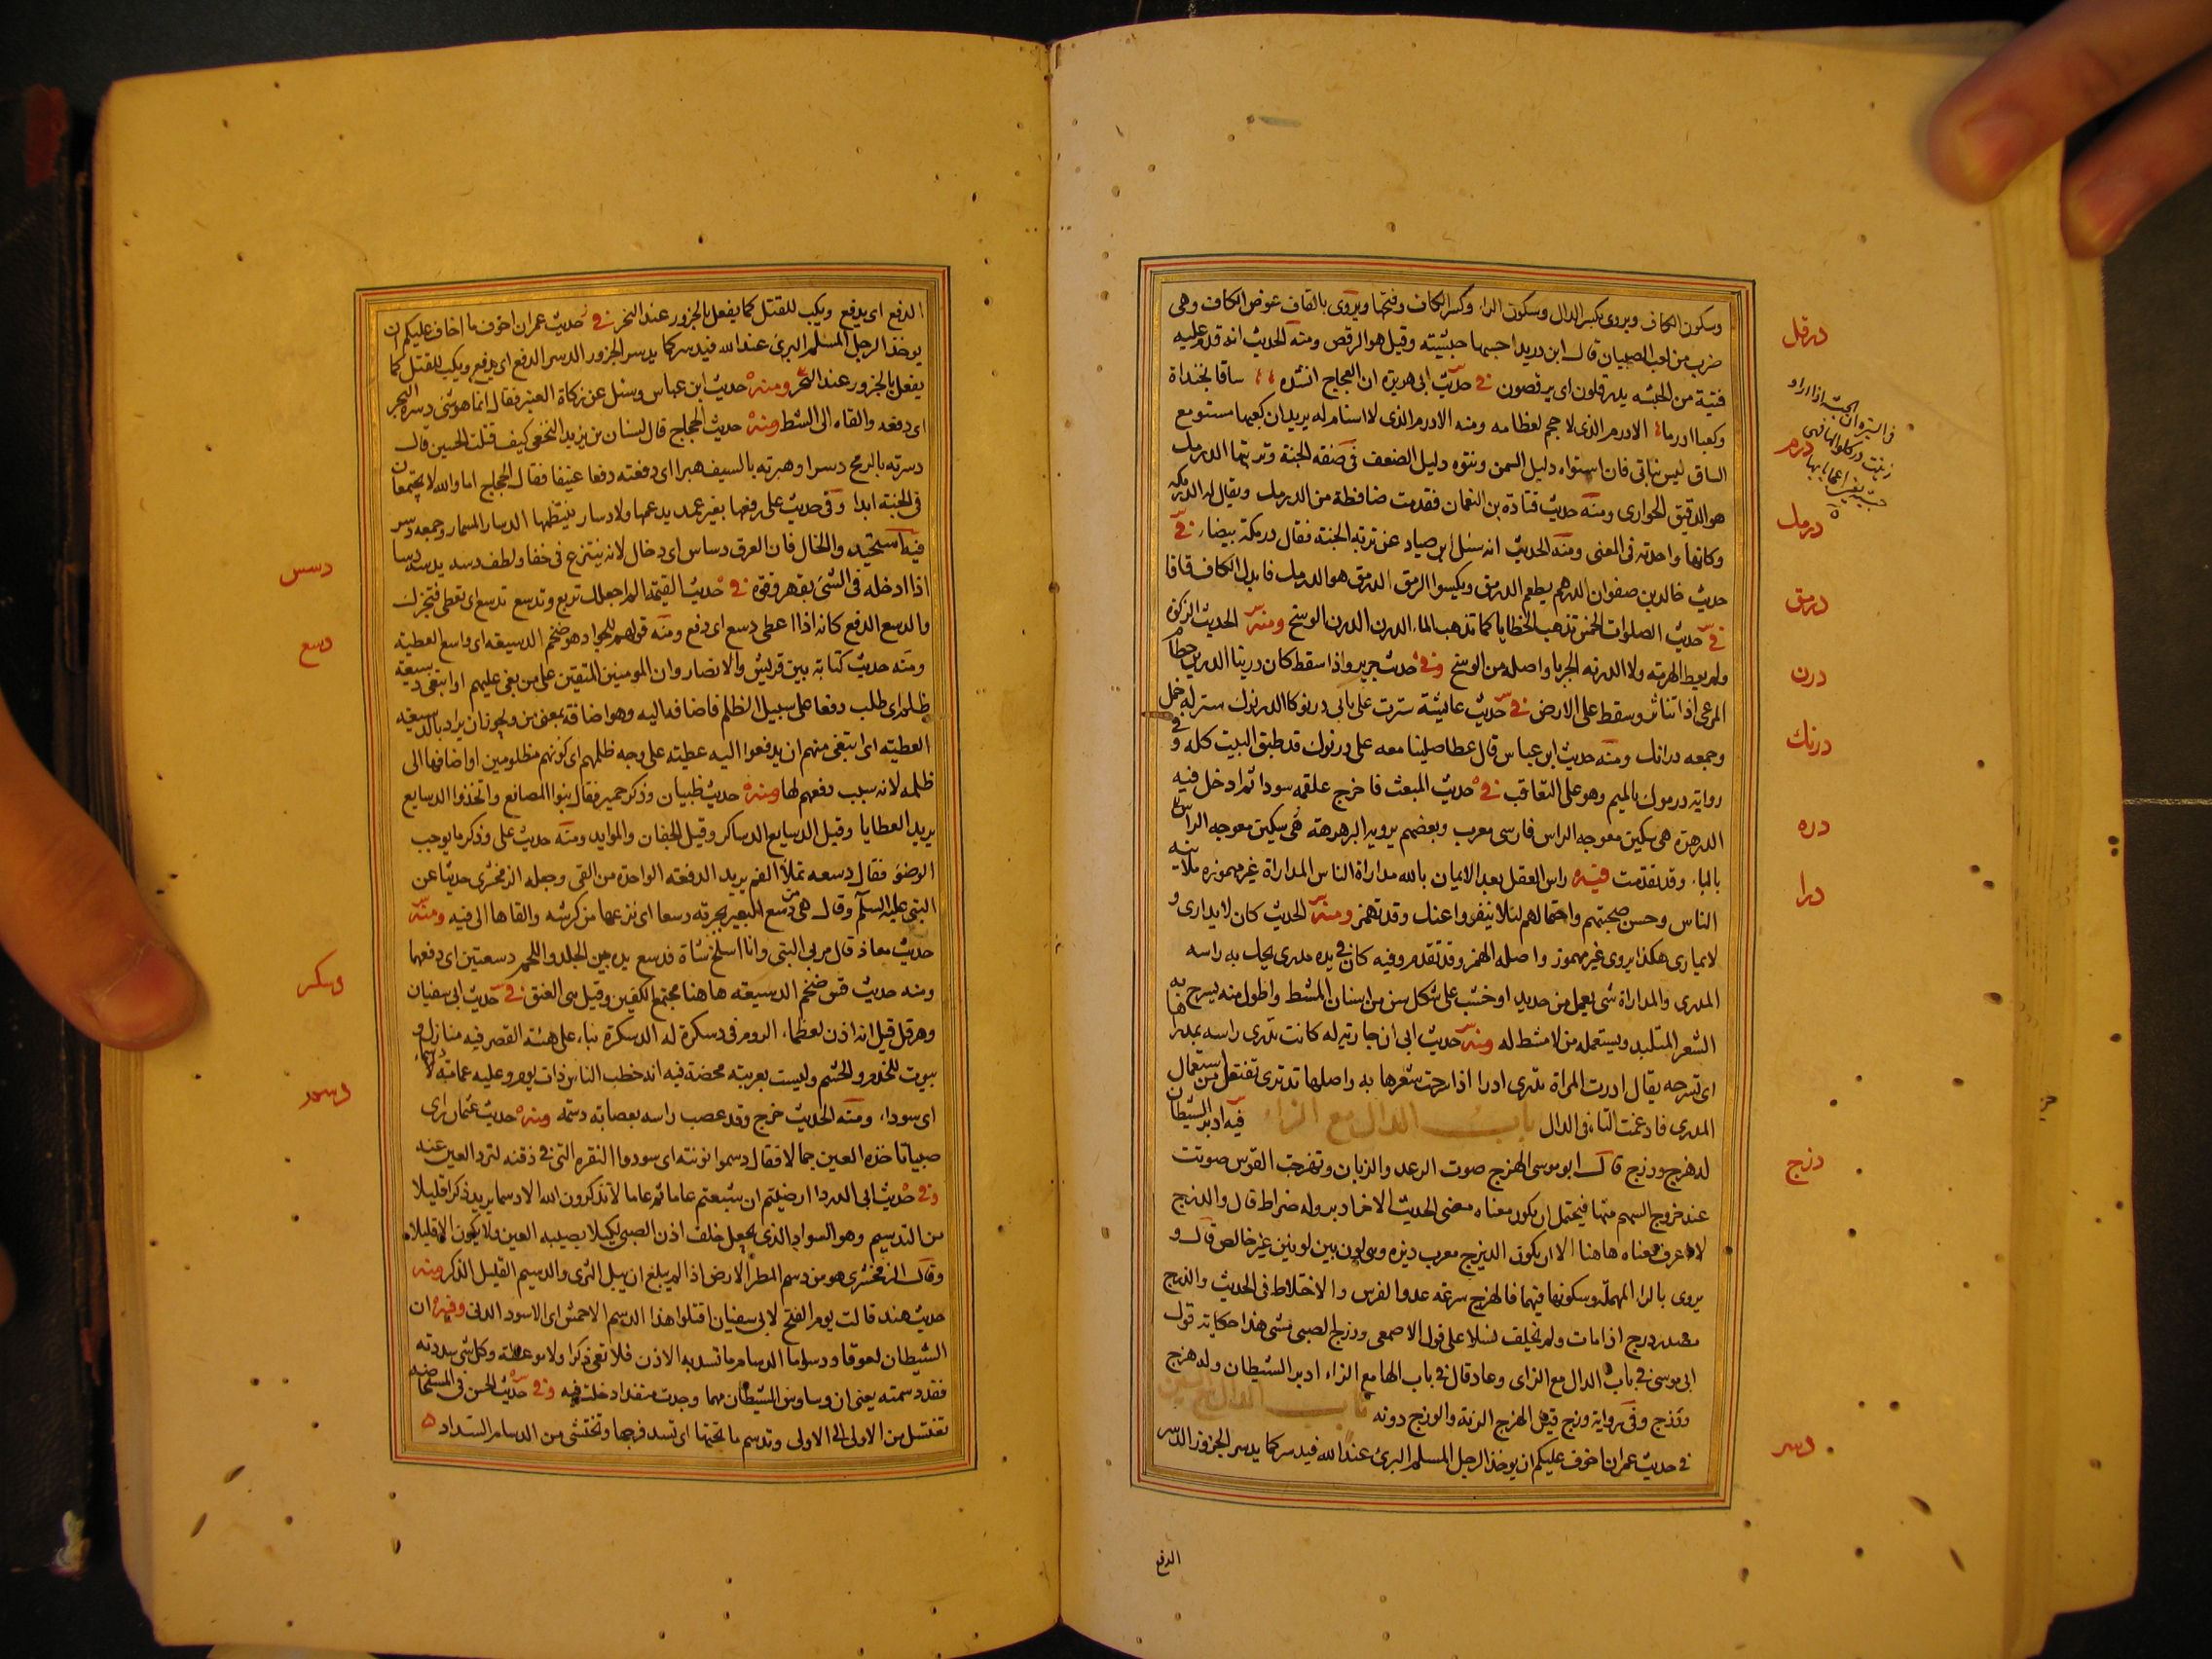 وسكون الكاف ويروى بكسر الدال وسكون الراء وكسر الكاف وفتحها ويروى بالقاف عوض الكاف وهى
ضرب من لعب الصبيان قال ابن دريد احسبها حبشيته وقيل هو الرقص ومنه الحديث انه قدم عليه
فتية من الحبشه يدرقلون اى يرقصون فى حديث ابى هريرة ان العجاج انشده ساقا بخنداة
وكعبا ادرما الادرم الذى لا حجم لعظامه ومنه الادرم الذى لا اسنام له يريد ان كعبها مستو مع
الساق ليس بناتى فان استواه دليل السمن ونتوه دليل الضعف فى صفه الجنة وتربتها الدرمك
هو الدقيق الحوارى ومنه حديث قتادة بن النعمان فقدمت ضافطة من الدرمك ويقال له الدرمكه
وكانها واحدته فى المعنى ومنه الحديث انه سئل ابن صياد عن تربة الجنة فقال درمكة بيضاء فى
حديث خالد بن صفوان الدرهم يطعم الدرمق ويكسوا الرمق الدرمق هو الدرمك فابدل الكاف قافا
فى حديث الصلوات الخمس تذهب الخطايا كما تذهب الماء الدرن الدرن الوسخ ومنه الحديث الزكوة
ولم يعط الهرمة ولا الدرنه الجربا واصله من الوسخ وفى حديث جرير واذا سقط كان درينا الدرين حطام
المرعى اذا تناثر وسقط على الارض فى حديث عائشة سترت على بابى درنوكا الدرنوك ستر له خمل
وجمعه درانك ومنه حديث ابن عباس قال عطا صلينا معه على درنوك قد طبق البيت كله وفى
رواية درموك بالميم وهو على التعاقب فى حديث المبعث فاخرج علقمه سودا ثم ادخل فيه
الدرهرة هى سكين معوجه الراس فارسى معرب وبعضهم يرويه البرهرهة هى سكين معوجه الراس
بالباء وقد تقدمت فيه راس العقل بعد الايمان بالله مداراة الناس المداراة غير مهموزه ملاينه
الناس وحسن صحبتهم واحتمالهم لئلا ينفروا عنك وقد تهمز ومنه الحديث كان لا يدارى و
لا يمارى هكذا يروى غير مهموز واصله الهمز وقد تقدم وفيه كان فى يده مدرى يحك به راسه
المدرى والمداراة شى يعمل من حديد او خشب على شكل سن من اسنان المشط واطول منه يسرح به
الشعر المتلبد ويستعمله من لا مشط له ومنه حديث ابى ان جارية له كانت تدرى راسه بمدراها
اى تسرحه يقال ادرت المراة تدرى ادرا اذا سرحت شعرها به واصلها تدترى تفتعل من استعمال
المدرى فادغمت التاء فى الدال باب الدال مع الزاء فيه ادبر الشيطان
له هزج ودزج قال ابو موسى الهزج صوت الرعد والذبان وتهزجت القوس صوتت
عند خروج السهم منها فيحتمل ان يكون معناه معنى الحديث الاخر ادبر وله ضراط قال والدزج
لا اعرف معناه هاهنا الا ان يكون الديزج معرب ديزه وهى لون بين لونين غير خالص قال و
يروى بالراء المهملة وسكونها فيهما فالهزج سرعه عدو الفرس والاختلاط فى الحديث والدرج
مصدر درج اذا مات ولم يخلف نسلا على قول الاصمعى ودرج الصبى مشى هذا حكاية قول
ابى موسى فى باب الدال مع الزاى وعاد قال فى باب الها مع الزاء ادبر الشيطان وله هزج
ودزج وفى رواية وزج قيل الهزج الرنة والوزج دونه باب الدال مع السين
فى حديث عمر ان اخوف عليكم ان يوخذ الرجل المسلم البرى عند الله فيدسر كما يدسر الجزور الدسر
درقل
درم
درمك
درمق
درن
درنك
دره
درا
دزج
دسر
الدفع
الدفع اى يدفع ويكب للقتل كما يفعل بالجزور عند النحر فى حديث عمر ان اخوف ما اخاف عليكم ان
يوخذ الرجل المسلم البرى عند الله فيدسر كما يدسر الجزور الدسر الدفع اى يدفع ويكب للقتل كما
يفعل بالجزور عند النحر ومنه حديث ابن عباس وسئل عن زكاة العنبر فقال انما هو شى دسره البحر
اى دفعه والقاه الى الشط ومنه حديث الحجاج قال لسنان بن يزيد النخعى كيف قتلت الحسين قال
دسرته بالرمح دسرا وهبرته بالسيف هبرا اى دفعته دفعا عنيفا فقال الحجاج اما والله لا يجتمعان
فى الجنة ابدا وفى حديث على رفعها بغير عمد يدعمها ولا دسار ينتظمها الدسار المسمار وجمعه دسر
فيه استجيد والخال فان العرق دساس اى دخال لانه ينتزع فى خفا ولطف دسه يدسه دسا
اذا ادخله فى الشى بقهر وقوة فى حديث القيمة الم اجعلك تربع وتدسع تدسع اى تعطى فتجزل
والدسع الدفع كانه اذا اعطى دسع اى دفع ومنه قولهم للجواد هو ضخم الدسيعه اى واسع العطيته
ومنه حديث كتابه بين قريش والانصار وان المومنين المتقين على من بغى عليهم او ابتغى دسيعة
ظلم اى طلب دفعا على سبيل الظلم فاضافه اليه وهو اضافة بمعنى من ويجوز ان يراد بالدسيعه
العطيته اى ابتغى منهم ان يدفعوا اليه عطيته على وجه ظلمهم اى كونهم مظلومين او اضافها الى
ظلمه لانه سبب دفعهم لها ومنه حديث ظبيان وذكر حمير فقال بنوا المصانع واتخذوا الدسايع
يريد العطايا وقيل الدسايع الدساكر وقيل الجفان والموايد ومنه حديث على وذكر ما يوجب
الوضو فقال دسعه تملأ الفم يريد الدفعه الواحدة من القى وجعله الزمخشرى حديثا عن
النبى عليه السلم وقال هى من دسع البعير بجرته دسعا اى نزعها من كرشه والقاها الى فيه ومنه
حديث معاذ قال مر بى النبى وانا اسلخ شاة فدسع يده بين الجلد واللحم دسعتين اى دفعها
ومنه حديث قس ضخم الدسيعه هاهنا مجتمع الكتفين وقيل هى العنق فى حديث ابى سفيان
وهرقل قيل انه اذن لعظماء الروم فى دسكرة له الدسكرة بناء على هيئة القصر فيه منازل و
بيوت للخدم والحشم وليست بعربيه محضة فيه انه خطب الناس ذات يوم وعليه عمامة دسماء
اى سوداء ومنه الحديث خرج وقد عصب راسه بعصابه دسمه ومنه حديث عثمان راى
صبيا تاخذه العين جمالا فقال دسموا نونته اى سودوا النقره التى فى ذقنه لترد العين عنه
وفى حديث ابى الدردا ارضيتم ان شبعتم عاما ثم عاما لا تذكرون الله الا دسما يريد ذكرا قليلا
من التدسيم وهو السواد الذى يجعل خلف اذن الصبى لكيلا يصيبه العين ولا يكون الا قليلا
وقال الزمخشرى هو من دسم المطر الارض اذا لم يبلغ ان يبل الثرى والدسيم القليل الذكر ومنه
حديث هند قالت يوم الفتح لابى سفيان اقتلوا هذا الدسم الاحمش اى الاسود الدنى وفيه ان
الشيطان لعوقا ودساما الدسام ما تسد به الاذن فلا تعى ذكرا ولا موعظة وكل شى سددته
فقد دسمته يعنى ان وساوس الشيطان مهما وجدت منفذا دخلت فيه وفى حديث الحسن فى المستحاضه
تغتسل من الاولى الى الاولى وتدسم ما تحتها اى تسد فرجها وتحتشى من الدسام السداد
دسس
دسع
دسكر
دسم